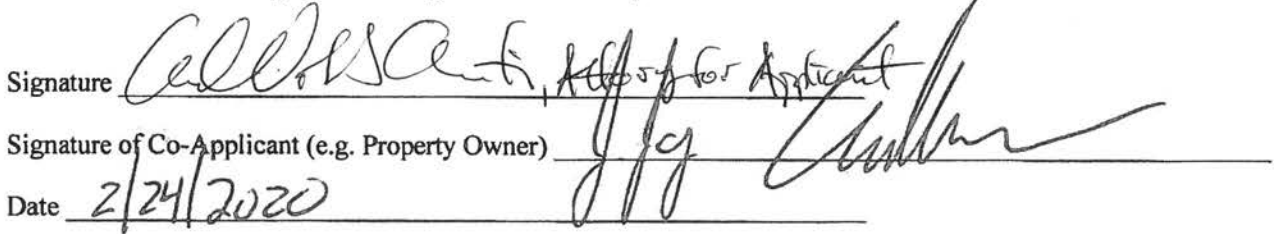 Signature , Attorney for Applicant
Signature of Co-Applicant (e.g. Property Owner)
Date 2/24/2020